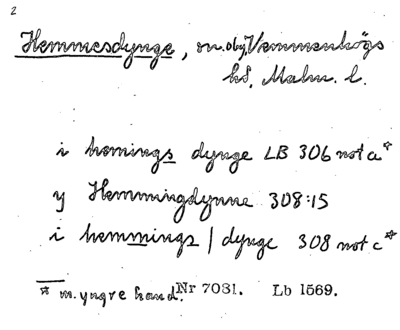 2
Hemmesdynge, sn. o by, Vemmenhögs
hd, Malm. l.
i homings dynge LB 306 not a*
y Hemmingdynne 308:15
i hemmings | dynge 308 not c*
* m. yngre hand. Nr 7031. Lb 1569.